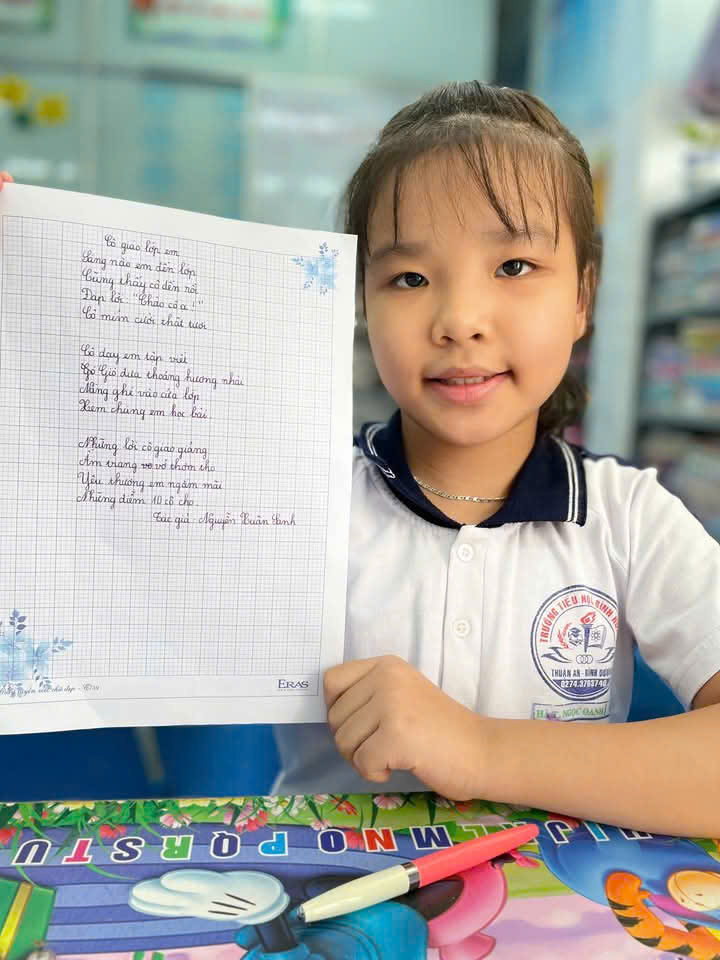 Cô giáo lớp em
Sáng nào em đến lớp
Cũng thấy cô đến rồi
Đáp lời: "Chào cô ạ!"
Cô mỉm cười thật tươi
Cô dạy em tập viết
Gió đưa thoảng hương nhài
Nắng ghé vào cửa lớp
Xem chúng em học bài.
Những lời cô giáo giảng
Ấm trang vở thơm tho
Yêu thương em ngắm mãi
Những điểm 10 cô cho.
Tác giả - Nguyễn Xuân Sanh
ERAS
TRƯỜNG TIỂU HỌC BÌNH
THUẬN AN - BÌNH DƯƠNG
0274.3763746
NGỌC OANH
HIJKLMNOPQRSTU